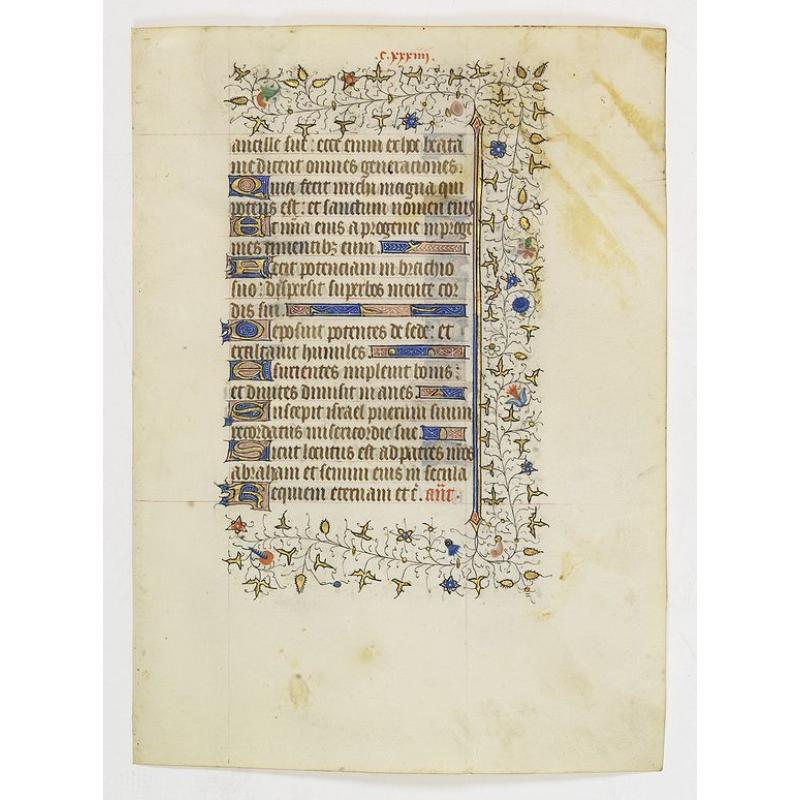 .c.xxxiiij.
ancille sue: ecce enim ex hoc beatā
me dicent omnes generaciones.
Quia fecit michi magna qui
potens est: et sanctum nomen eius
Et mīa eius a progenie in proge
nies timentibꝫ eum.
Fecit potenciam in brachio
suo: dispersit superbos mente cor
dis sui.
Deposuit potentes de sede: et
exaltauit humiles
Esurientes impleuit bonis:
et diuites dimisit inanes
Suscepit israel puerum suum
recordatus misericordie sue
Sicut locutus est ad patres nr̄os
abraham et semini eius in secula
Requiem eternam et c̄. añt.